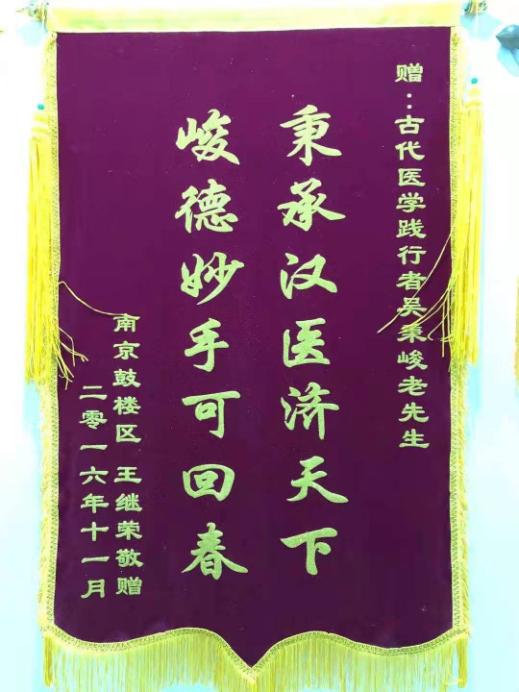 赠：古代医学践行者吴秉峻老先生
秉承汉医济天下
峻德妙手可回春
南京鼓楼区 王继荣敬赠
二零一六年十一月